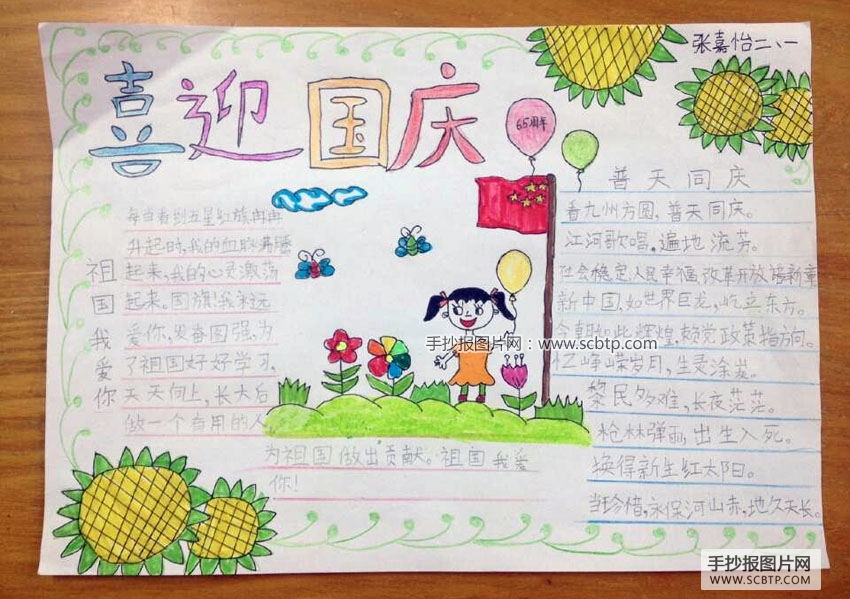 张嘉怡二、一
喜迎国庆
65周年
祖国我爱你
每当看到五星红旗冉冉
升起时,我的血液沸腾
起来,我的心灵激荡
起来。国旗!我永远
爱你,发奋图强,为
了祖国好好学习,
天天向上,长大后
做一个有用的人,
为祖国做出贡献。祖国我爱
你!
普天同庆
看九州方圆,普天同庆。
江河歌唱,遍地流芳。
社会稳定,人民幸福,改革开放谱新章
新中国,如世界巨龙,屹立东方。
今朝如此辉煌,赖党政策指方向。
忆峥嵘岁月,生灵涂炭。
黎民多难,长夜茫茫。
枪林弹雨,出生入死。
换得新生红太阳。
当珍惜,永保河山赤,地久天长。
手抄报图片网:www.scbtp.com
手抄报图片网
WWW.SCBTP.COM